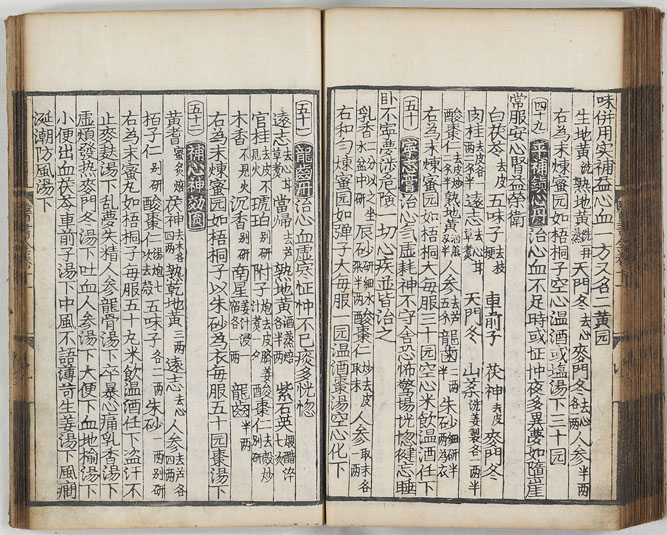 味併用实補益心血一方又名二黄园
生地黄洗 熟地黄洗 天門冬去心 麥門冬去心各一両 人参半両
右為末煉蜜园如梧桐子空心温酒或塩湯下三十园
四十九 平補鎮心丹 治心血不足時或怔忡夜多異夢如隨崖
常服安心腎益榮衛
白茯苓去皮 五味子去枝梗 車前子 茯神去皮 麥門冬
肉桂去皮 遠志去心 天門冬 山茱洗姜製各一両半
酸棗仁去皮炒 熟地黄 人参 龍齒 朱砂細研半両為衣
右為末煉蜜园如梧桐大毎服三十园空心米飲温酒任下
五十 寧心膏 治心气虚耗神不守舍恐怖驚惕恍惚健忘睡
卧不寧夢渉危険一切心疾並皆治之
乳香 辰砂 酸棗仁 人参
右和匀煉蜜园如弾子大毎服一园温酒棗湯空心化下
五十一 龍齒丹 治心血虚寒怔忡不已痰多恍惚
遠志去心 當帰去芦 熟地黄酒蒸焙各半両 紫石英
官桂去皮不見火 琥珀别研 附子炮去皮臍 酸棗仁
木香不見火 沉香别研 南星 龍齒半両
右為末煉蜜园如梧桐子以朱砂為衣毎服五十园棗湯下
五十二 補心神效园
黄耆蜜炙焙 茯神去木各四両 熟乾地黄三両 遠志去心 人参去芦各
栢子仁别研 酸棗仁 五味子各二両 朱砂一両别研
右為末蜜丸如梧桐子毎服五十九米飲温酒任下盗汗不
止麥麸湯下乱夢失精人参龍骨湯下卒暴心痛乳香湯下
虚煩發熱麥門冬湯下吐血人参湯下大便下血地榆湯下
小便出血茯苓車前子湯下中風不語薄苛生姜湯下風癇
涎潮防風湯下